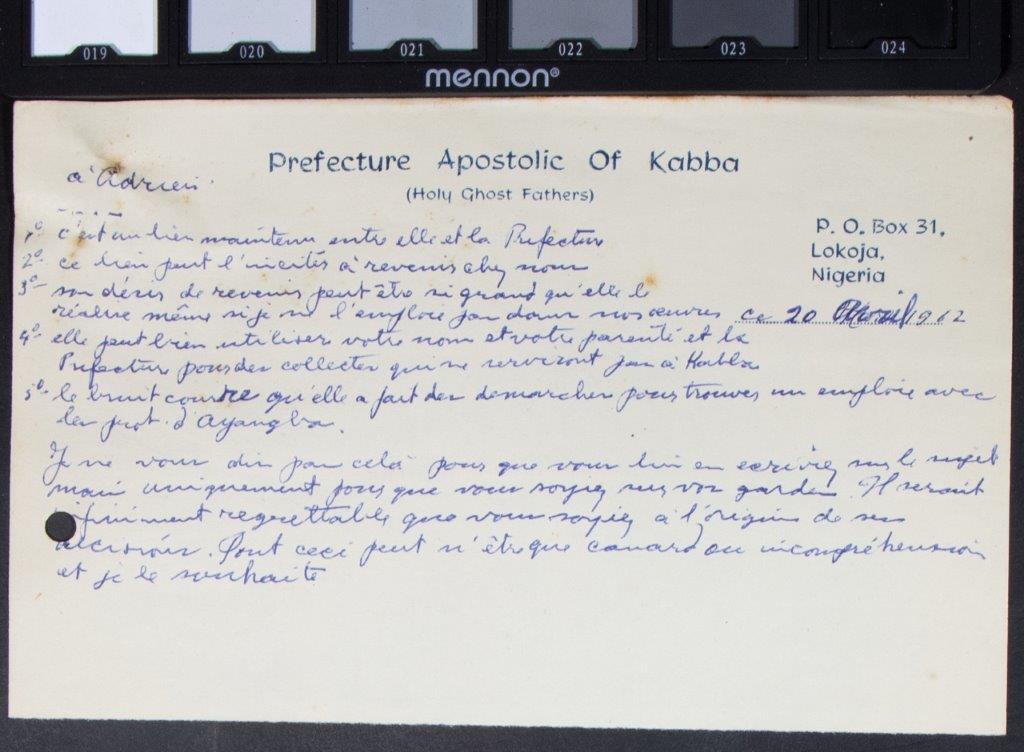 019 020 021 022 023 024
mennon®
Prefecture Apostolic Of Kabba
(Holy Ghost Fathers)
P. O. Box 31,
Lokoja,
Nigeria
ce 20 Avril 1962
à Adrien
1º- c'est un lien maintenu entre elle et la Prefecture
2º- ce lien peut l'inciter à revenir chez nous
3º- son désir de revenir peut être si grand qu'elle le
réalise même si je ne l'emploie pas dans nos oeuvres
4º- elle peut bien utiliser votre nom et votre parenté et la
Prefecture pour des collectes qui ne serviront pas à Kabba
5º- le bruit courre qu'elle a fait des demarches pour trouver un emploie avec
les prot. d'Ayangba.
Je ne vous dis pas celà pour que vous lui en ecriviez sur le sujet
mais uniquement pour que vous soyiez sur vos gardes. Il serait
infiniment regrettable que vous soyiez à l'origine de ses
décisions. Tout ceci peut n'être que canard ou incompréhension
et je le souhaite